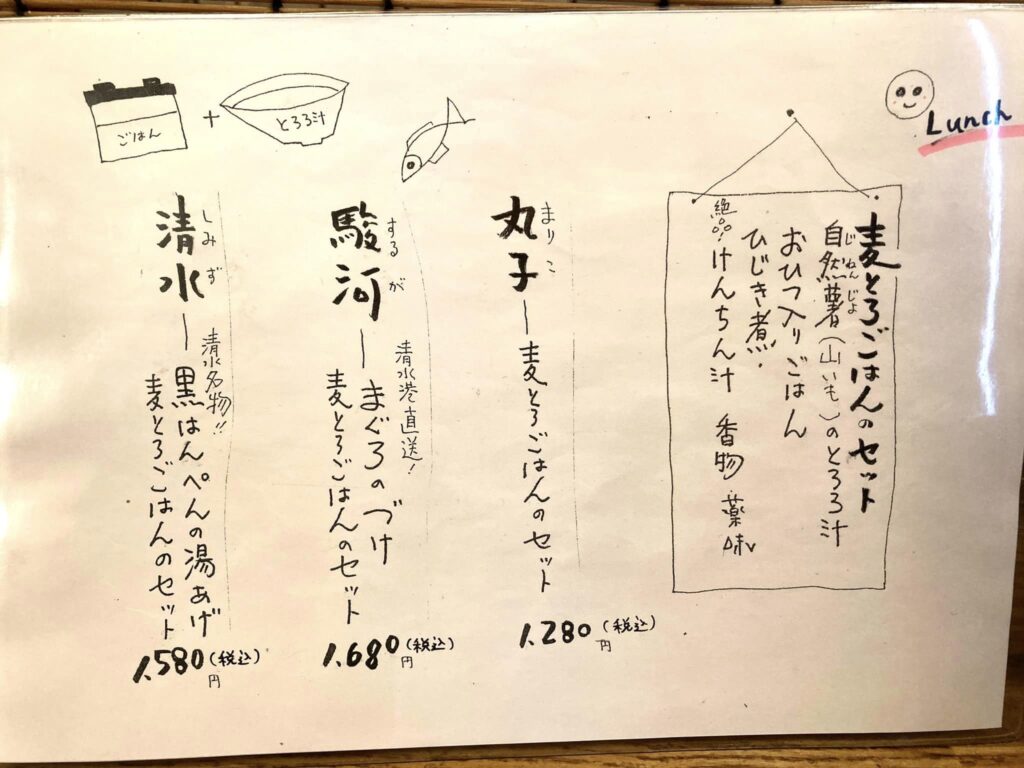 Lunch
麦とろごはんのセット
自然薯(山いも)のとろろ汁
じねんじょ
おひつ入りごはん
ひじき煮
絶品!けんちん汁 香物 薬味
丸子ー麦とろごはんのセット
まりこ
1,280円(税込)
駿河ーまぐろのづけ
するが
清水港直送!
麦とろごはんのセット
1,680円(税込)
清水ー黒はんぺんの湯あげ
しみず
清水名物!!
麦とろごはんのセット
1,580円(税込)
ごはん
+
とろろ汁